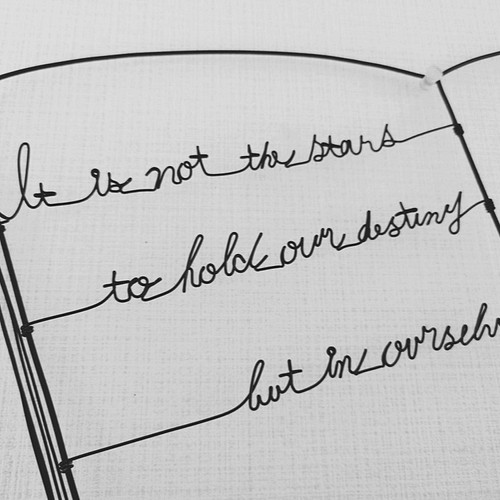 It is not the stars
to hold our destiny
but in ourselv